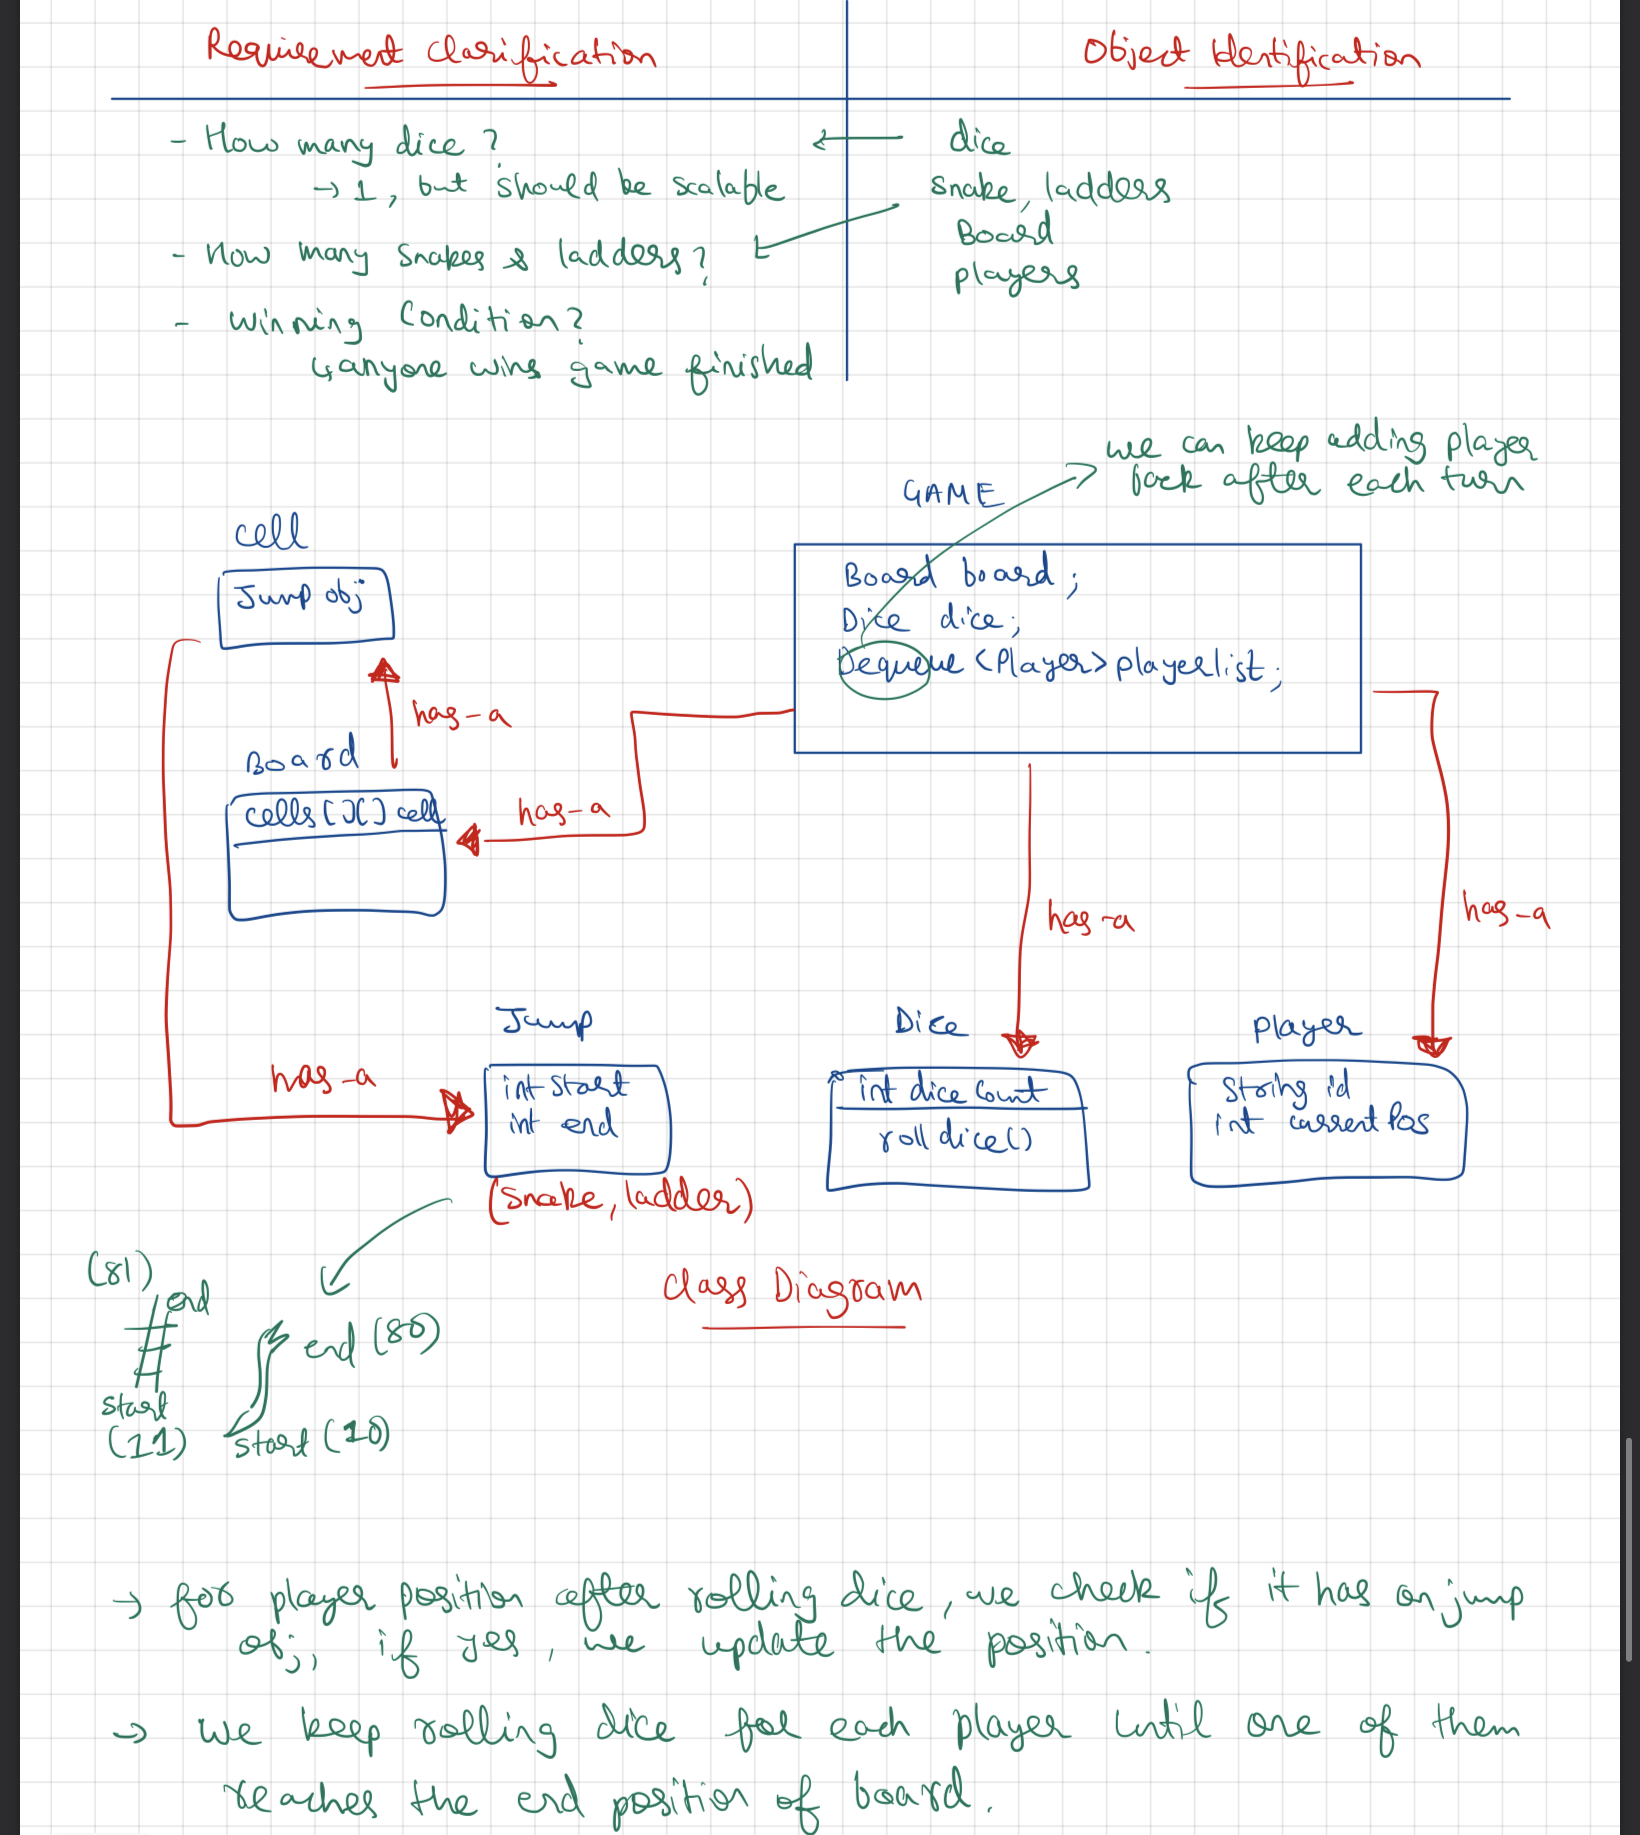 Requirement Clarification
Object Identification
- How many dice ?
→ 1, but should be scalable
- How many snakes & ladders?
- Winning Condition?
↳ anyone wins game finished
dice
snake, ladders
Board
players
we can keep adding player
back after each turn
GAME
Board board;
Dice dice;
Dequeue <Player> playerlist;
cell
Jump obj
has-a
Board
cells [][] cell
has-a
has-a
has-a
has-a
Jump
int start
int end
(snake, ladder)
Dice
int dice Count
roll dice()
player
String id
int current Pos
Class Diagram
(81)
end
start
(11)
end (80)
start (10)
→ for player position after rolling dice, we check if it has an jump
obj, if yes, we update the position.
→ we keep rolling dice for each player until one of them
reaches the end position of board.